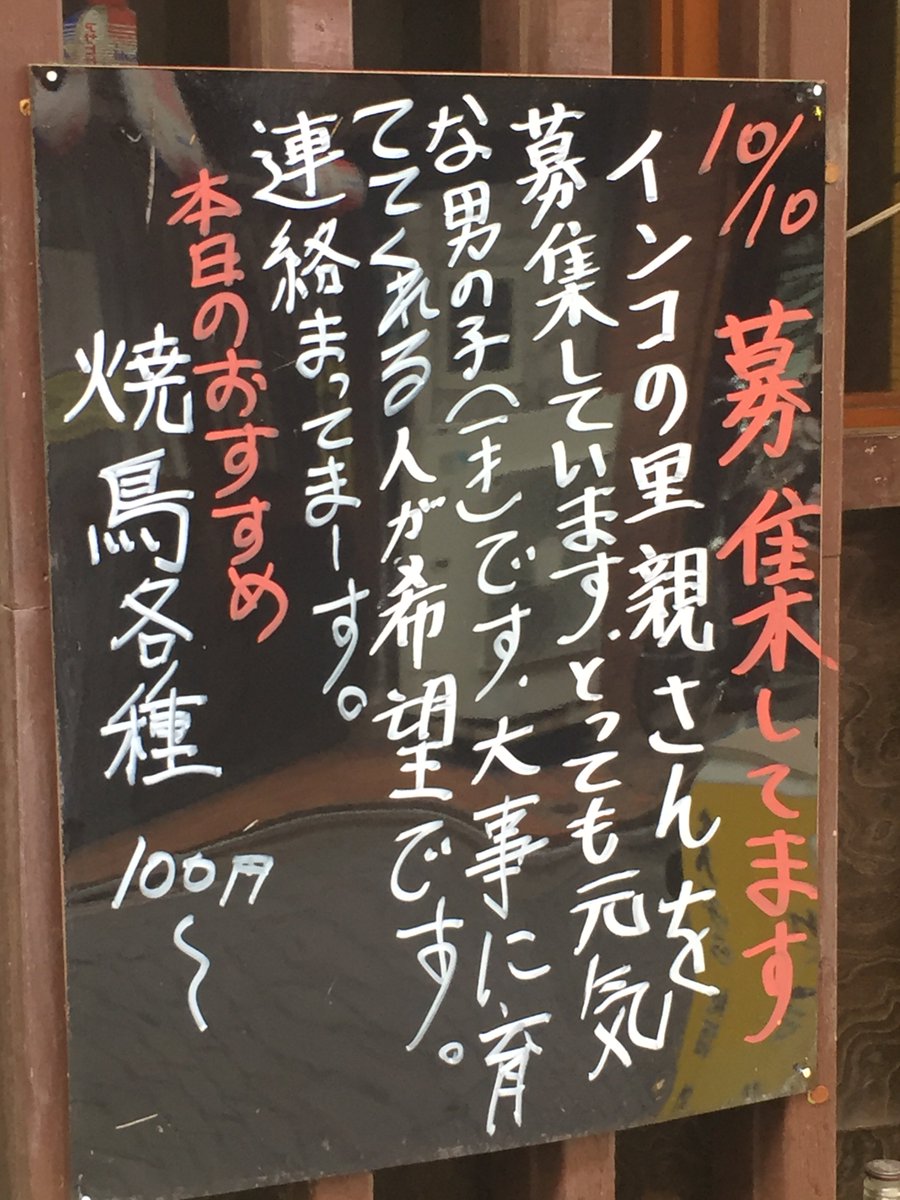 10/10 募集してます
インコの里親さんを
募集しています。とっても元気
な男の子(一才)です。大事に育
ててくれる人が希望です。
連絡まってまーす。
本日のおすすめ
焼鳥各種 100円〜